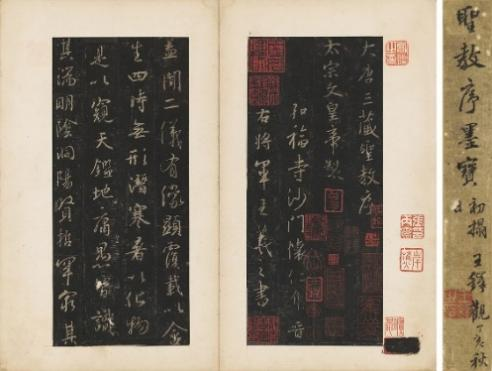 聖教序墨寶
初搨 王鐸觀 丁亥秋
大唐三藏聖教序
太宗文皇帝製
弘福寺沙門懷仁集晉
右將軍王羲之書
蓋聞二儀有像顯覆載以含
生四時無形潛寒暑以化物
是以窺天鑑地庸愚皆識
其端明陰洞陽賢哲罕窮其